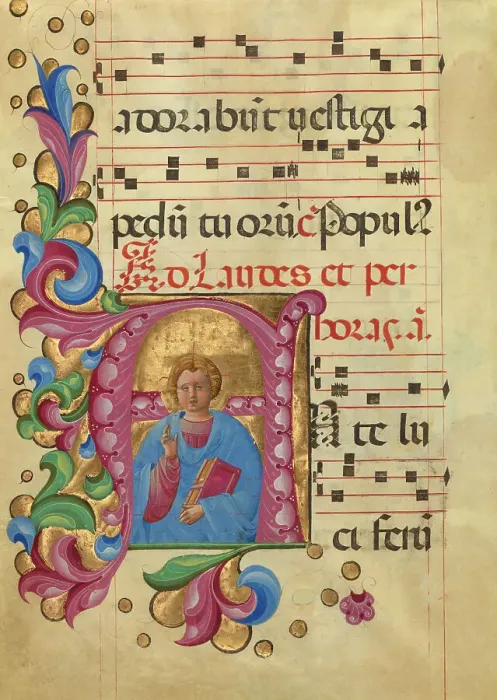 adorabūt uestigi a
pedū tu orū c̄ Popul
Ad Laudes et per
horas. ā.
A N te lu
ci ferū